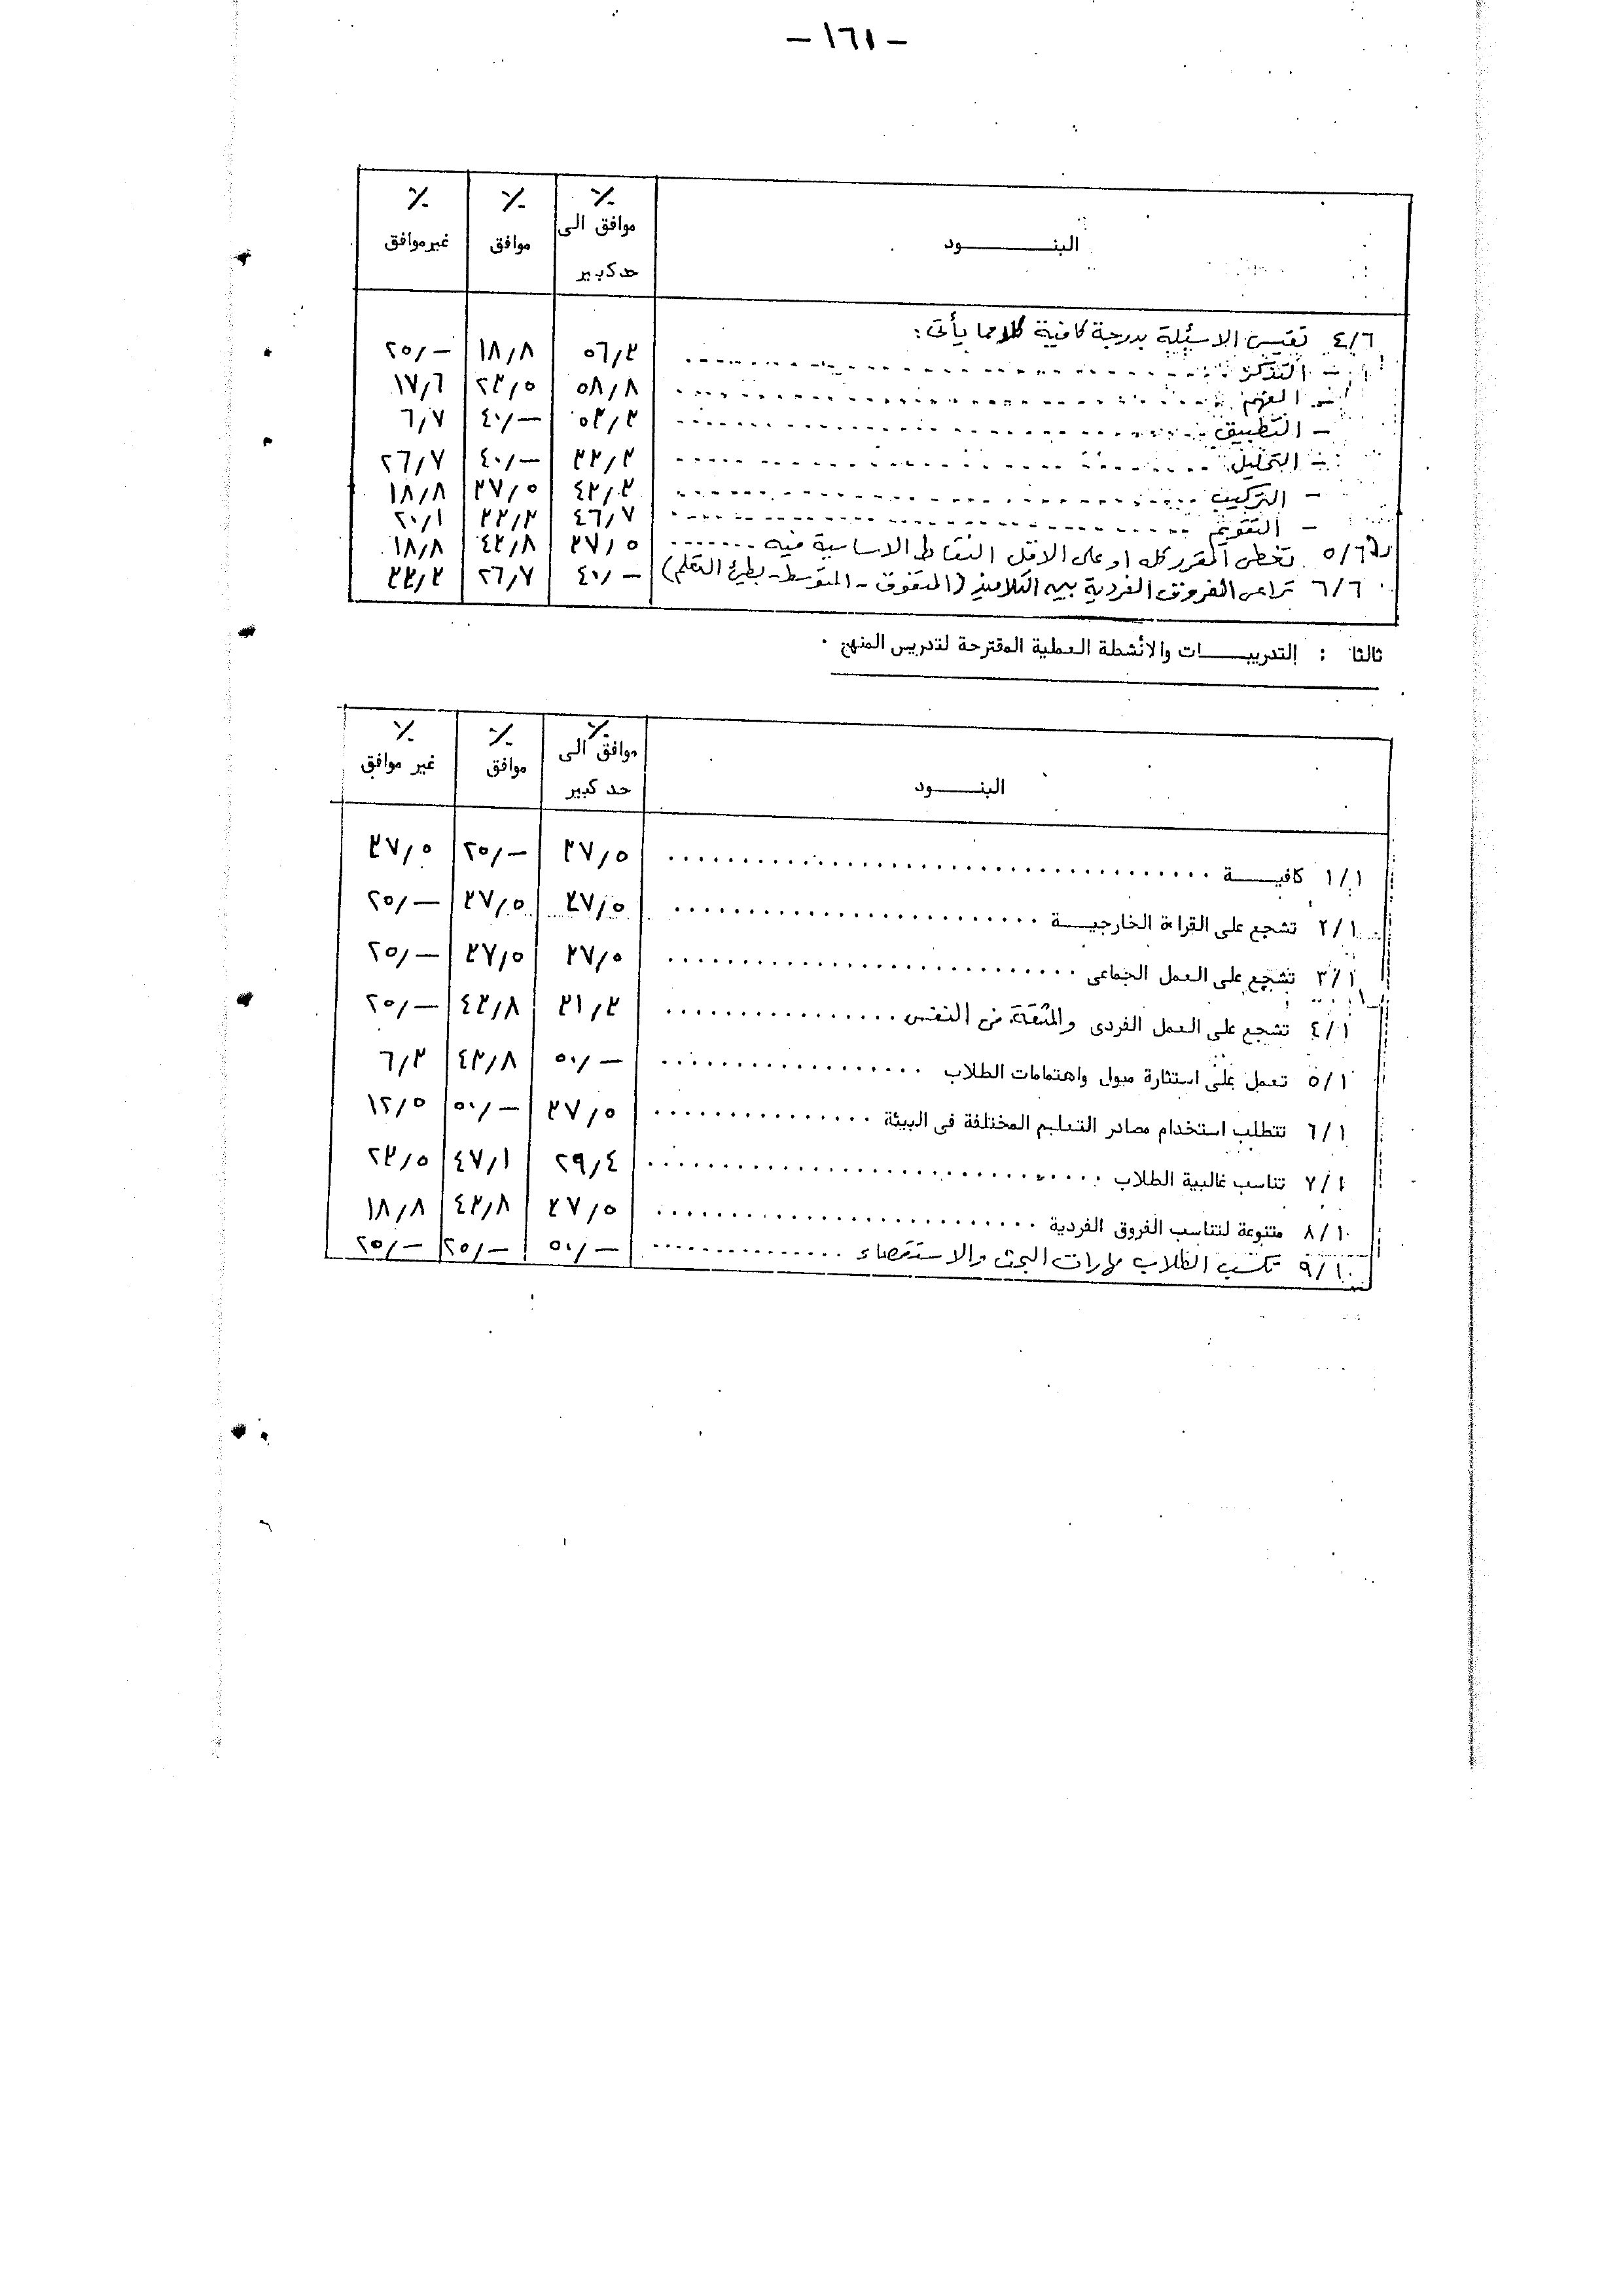 - ١٦١ -
البنـــــــود ٪ موافق الى حد كبير ٪ موافق ٪ غير موافق
٤/٦ تقيس الاسئلة بدرجة كافية كلا مما يأتى :
- التذكر ٥٦٫٣ ١٨٫٨ ٢٥٫–
- الفهم ٥٨٫٨ ٢٣٫٥ ١٧٫٦
- التطبيق ٥٣٫٣ ٤٠٫– ٦٫٧
- التحليل ٣٣٫٣ ٤٠٫– ٢٦٫٧
- التركيب ٤٣٫٣ ٣٧٫٥ ١٨٫٨
- التقويم ٤٦٫٧ ٣٣٫٣ ٢٠٫١
٥/٦ تغطى المقرر كله او على الاقل النقاط الاساسية فيه ٣٧٫٥ ٤٣٫٨ ١٨٫٨
٦/٦ تراعى الفروق الفردية بين التلاميذ (المتفوق - المتوسط - بطىء التعلم) ٤٠٫– ٢٦٫٧ ٣٣٫٣
ثالثا : التدريبـــــات والأنشطة العملية المقترحة لتدريس المنهج .
البنـــــود ٪ موافق الى حد كبير ٪ موافق ٪ غير موافق
١/١ كافيـــــة ٣٧٫٥ ٢٥٫– ٣٧٫٥
٢/١ تشجع على القراءة الخارجيـــة ٣٧٫٥ ٣٧٫٥ ٢٥٫–
٣/١ تشجع على العمل الجماعى ٣٧٫٥ ٣٧٫٥ ٢٥٫–
٤/١ تشجع على العمل الفردى والثقة فى النفس ٣١٫٣ ٤٣٫٨ ٢٥٫–
٥/١ تعمل على استثارة ميول واهتمامات الطلاب ٥٠٫– ٤٣٫٨ ٦٫٣
٦/١ تتطلب استخدام مصادر التعليم المختلفة فى البيئة ٣٧٫٥ ٥٠٫– ١٢٫٥
٧/١ تناسب غالبية الطلاب ٢٩٫٤ ٤٧٫١ ٢٣٫٥
٨/١ متنوعة لتناسب الفروق الفردية ٣٧٫٥ ٤٣٫٨ ١٨٫٨
٩/١ تكسب الطلاب مهارات البحث والاستقصاء ٥٠٫– ٢٥٫– ٢٥٫–